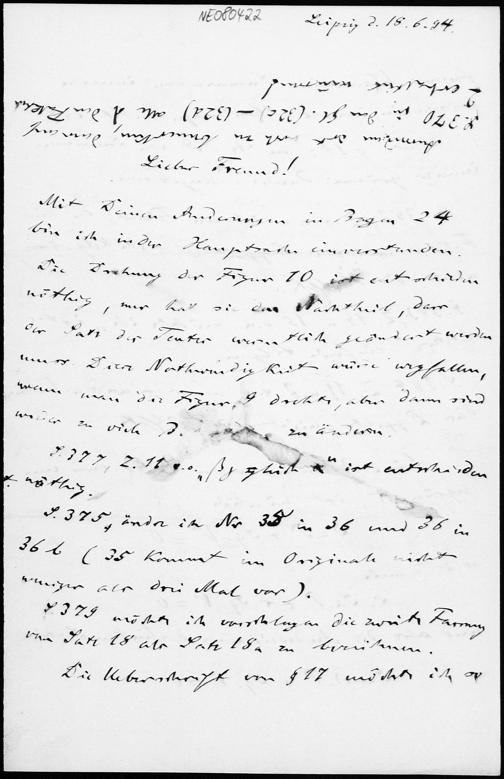 NE080422
Leipzig d. 18.6.94.
Lieber Freund!
Mit Deinen Änderungen in Bogen 24
bin ich in der Hauptsache einverstanden.
Die Drehung der Figur 10 ist entschieden
nöthig, nur hat sie den Nachtheil, dass
der Satz des Textes wesentlich geändert werden
muss. Diese Nothwendigkeit würde wegfallen,
wenn man die Figur 9 drehte, aber dann sind
wieder zu viele B. zu ändern.
S. 377, Z. 11 v.o. „ gleich " ist entschieden
nöthig.
S. 375, ändre ich Nr 35 in 36 und 36 in
36 b (35 kommt im Originale nicht
weniger als drei Mal vor).
S. 379 möchte ich vorschlagen die zweite Fassung
von Satz 18 als Satz 18a zu bezeichnen.
Die Ueberschrift von § 17 möchte ich so
S. 370 in den Gl. (32c) – (32a) alle